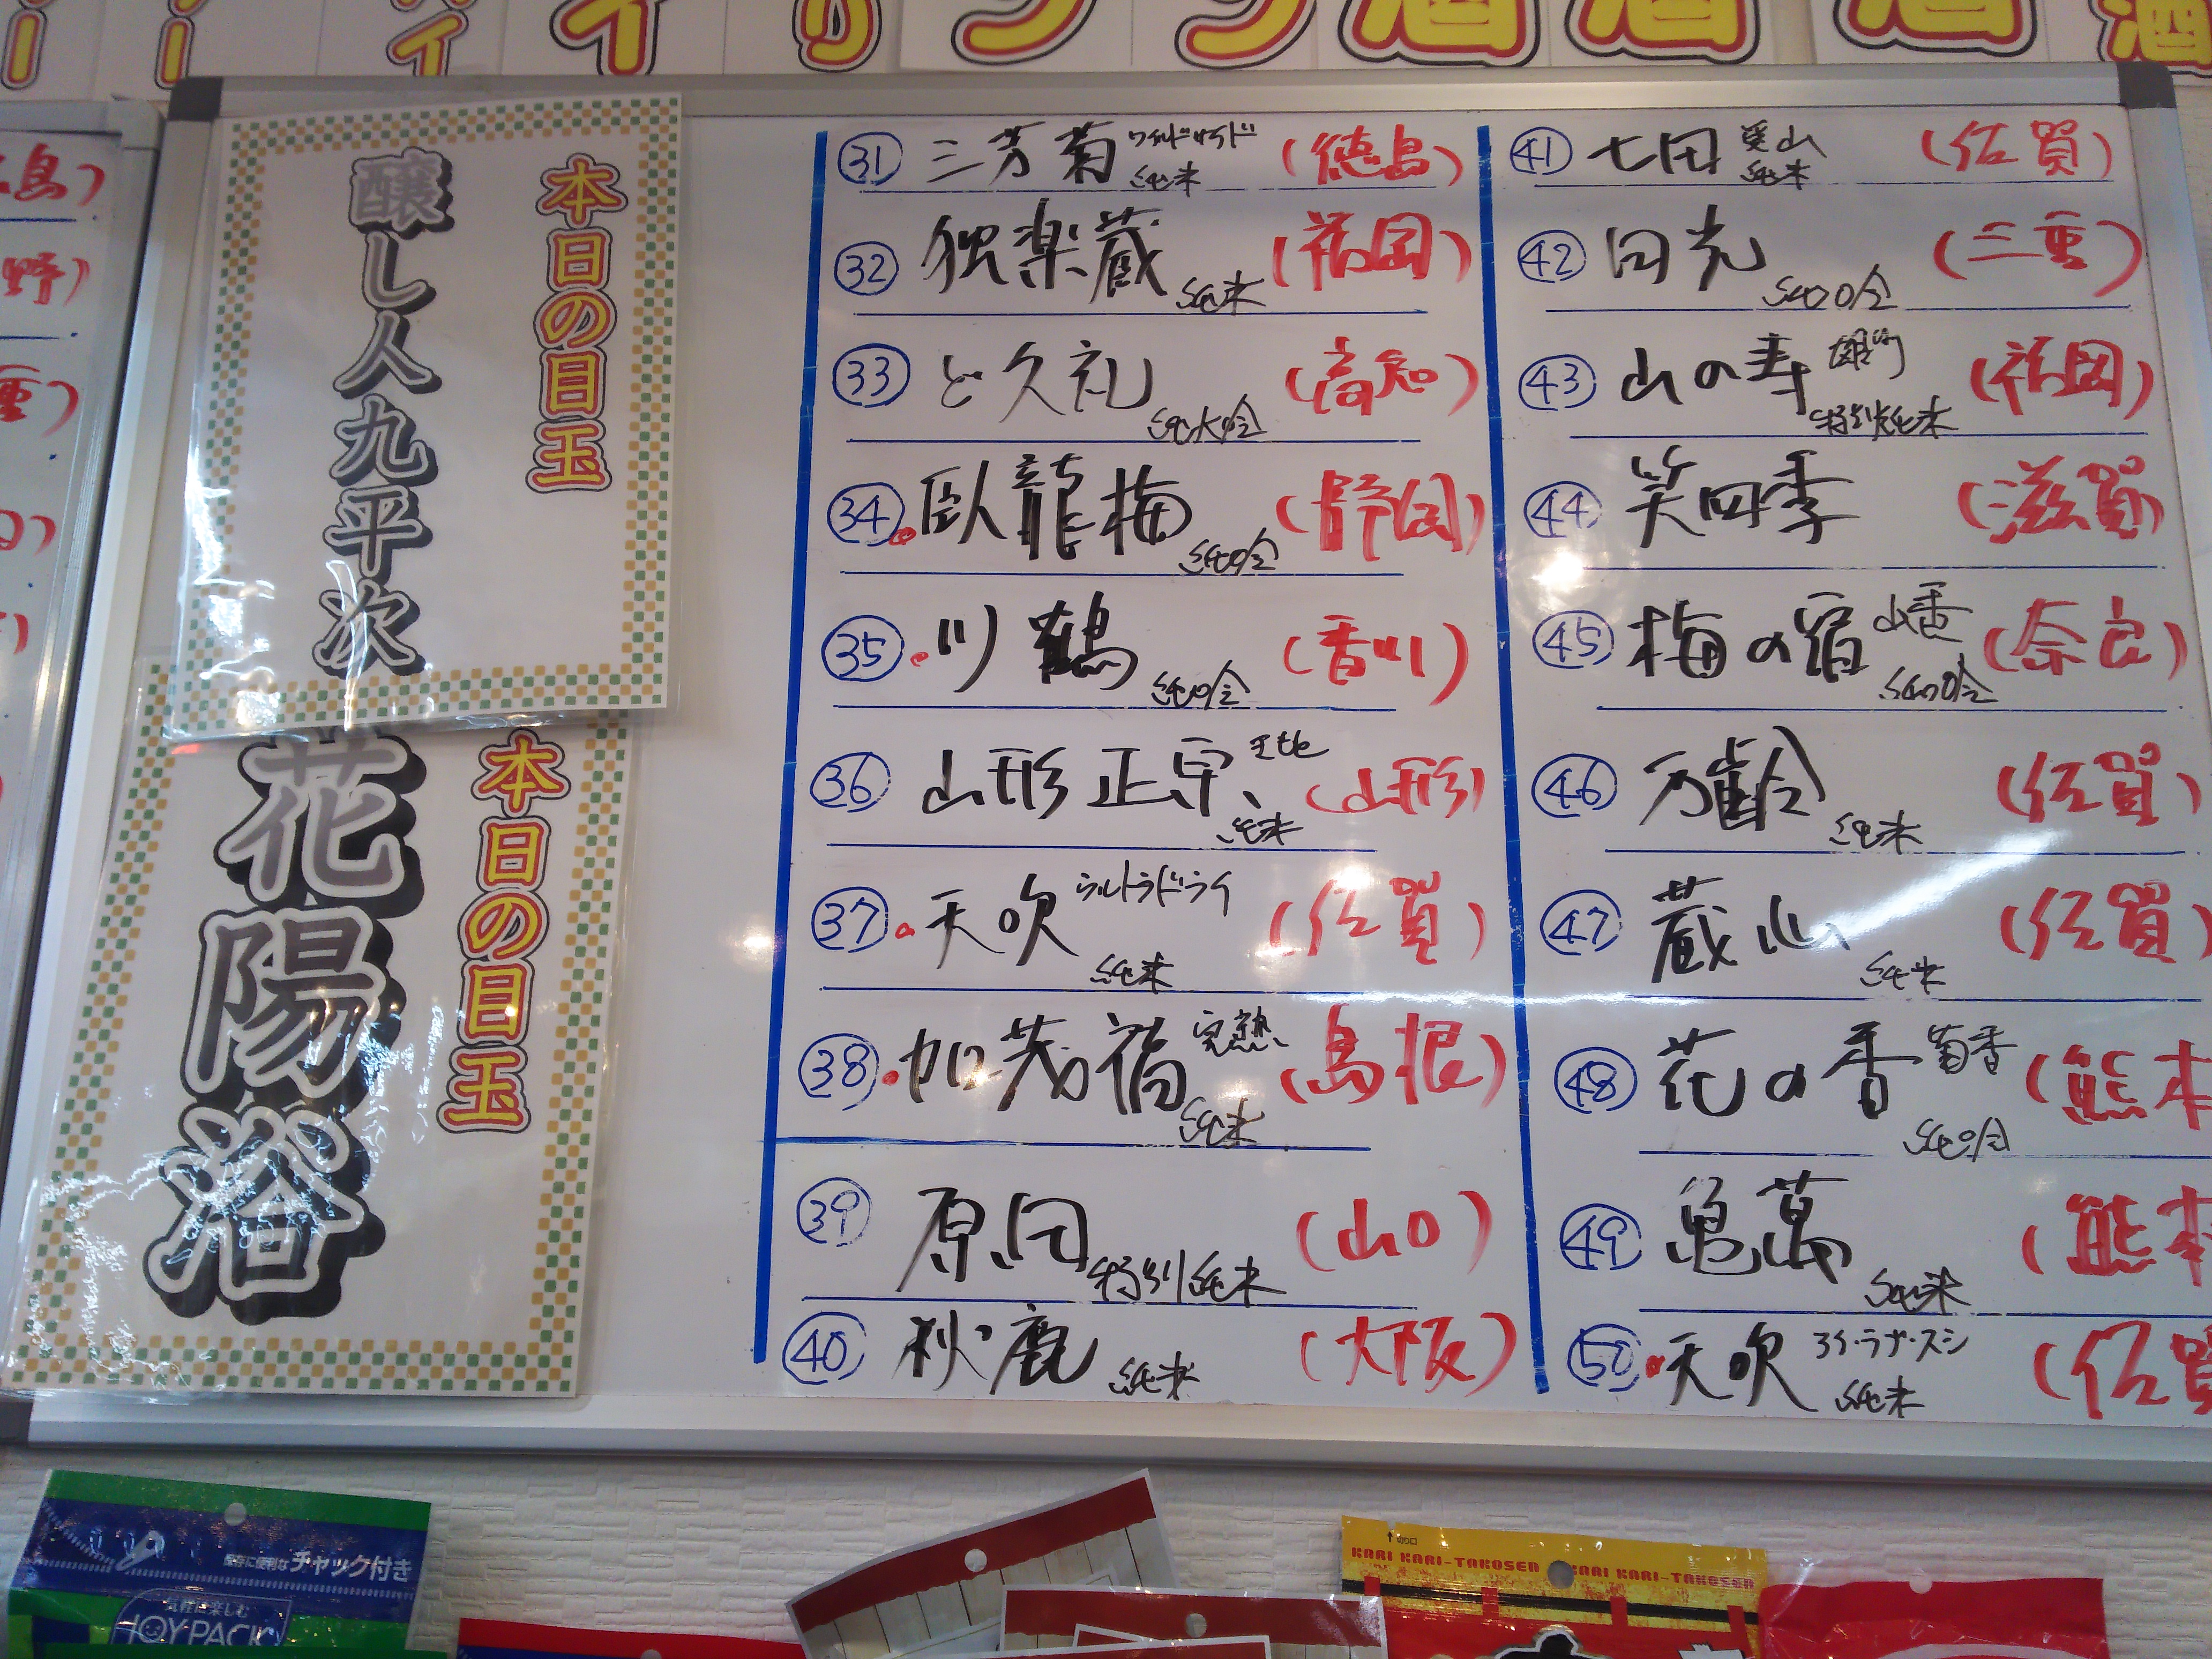 酒
酒
酒
島)
野)
重)
本日の目玉
醸し人九平次
本日の目玉
花陽浴
㉛ 三芳菊 ワイルドサイド 純米 (徳島)
㉜ 独楽蔵 純米 (福岡)
㉝ 久礼 純大吟 (高知)
㉞ 臥龍梅 純吟 (静岡)
㉟ 川鶴 純吟 (香川)
㊱ 山形正宗 純米 (山形)
㊲ 天吹 ウルトラドライ 純米 (佐賀)
㊳ 加茂福 完熟 純米 (島根)
㊴ 原田 特別純米 (山口)
㊵ 秋鹿 純米 (大阪)
㊶ 七田 愛山 純米 (佐賀)
㊷ 田光 純吟 (三重)
㊸ 山の寿 雄町 特別純米 (福岡)
㊹ 笑四季 (滋賀)
㊺ 梅の宿 山香 純吟 (奈良)
㊻ 万齢 純米 (佐賀)
㊼ 蔵心 純米 (佐賀)
㊽ 花の香 菊香 純吟 (熊本
㊾ 亀萬 純米 (熊本
㊿ 天吹 純米 (佐賀
保存に便利なチャック付き
気軽に楽しむ
JOY PACK
切口
KARI KARI-TAKOSEN KARI KARI-TAKOSEN